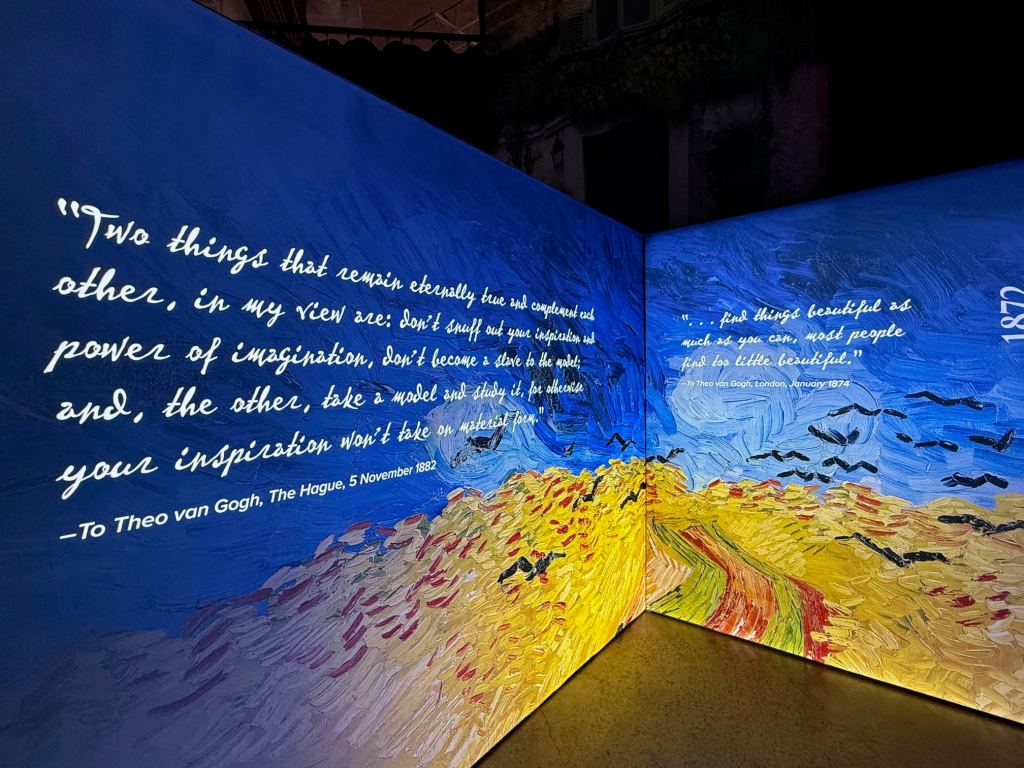 “Two things that remain eternally true and complement each
other, in my view are: don't snuff out your inspiration and
power of imagination, don't become a slave to the model;
and, the other, take a model and study it, for otherwise
your inspiration won't take on material form.”
—To Theo van Gogh, The Hague, 5 November 1882
“. . . find things beautiful as
much as you can, most people
find too little beautiful.”
—To Theo van Gogh, London, January 1874
1872